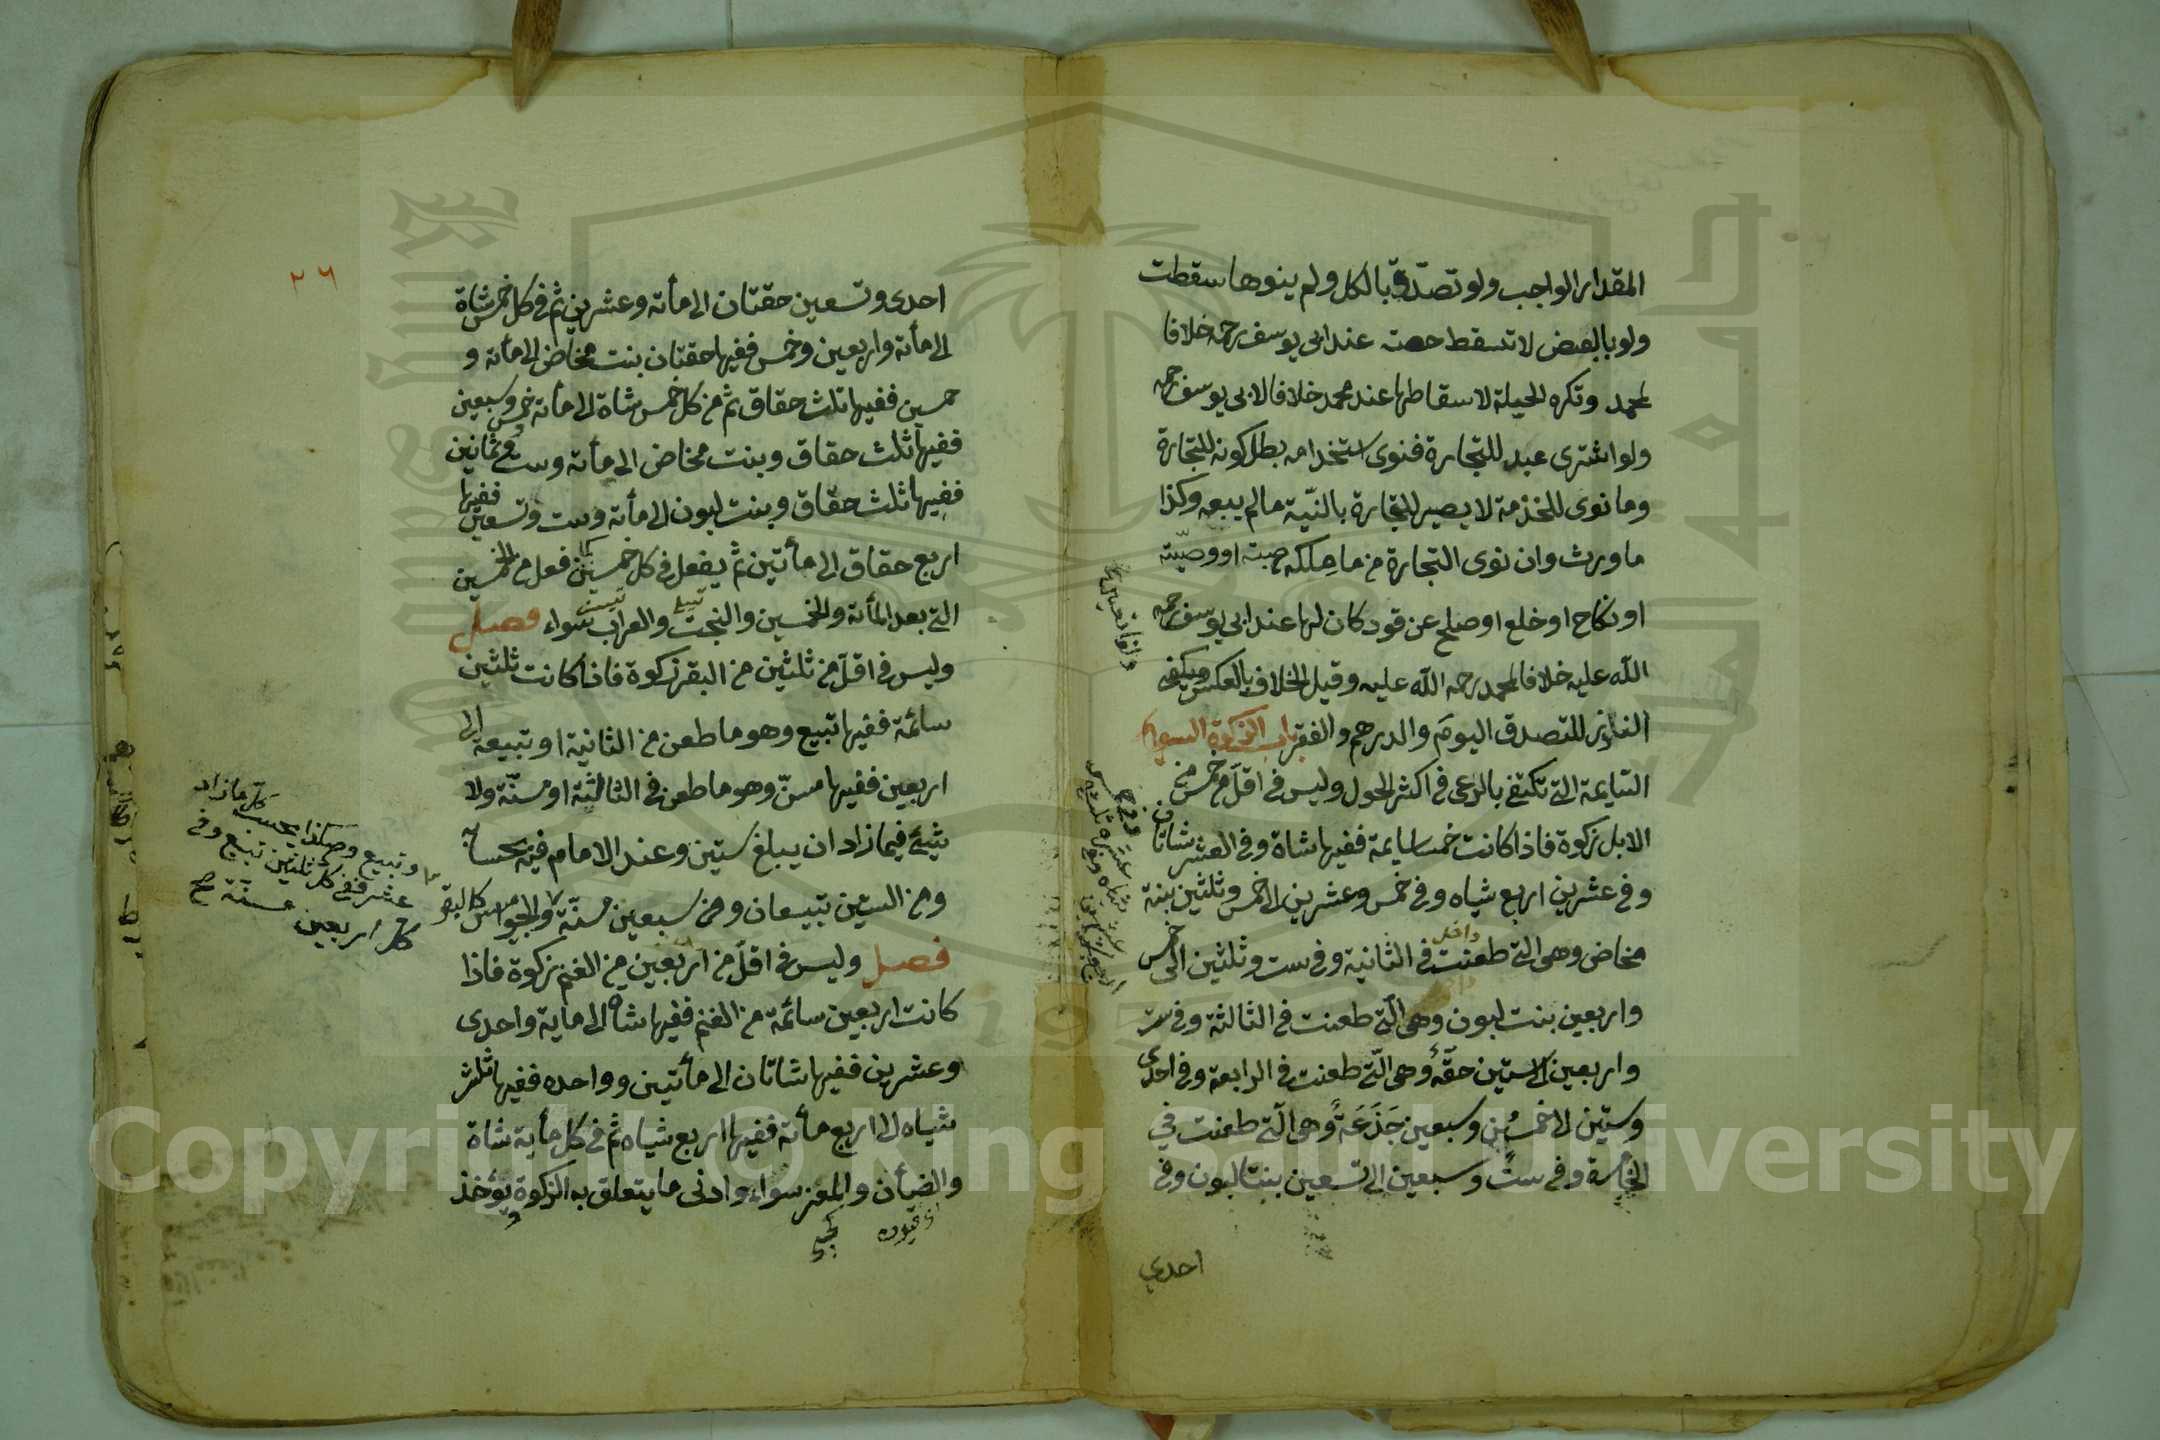 المقدار الواجب ولو تصدّق بالكل ولم ينوها سقطت
ولو بالبعض لا تسقط حصته عند ابي يوسف رحمه خلافا
لمحمد وتكره الحيلة لاسقاطها عند محمد خلافا لابي يوسف رحمه
ولو اشترى عبد للتجارة فنوى استخدامه بطل كونه للتجارة
وما نوى للخدمة لا يصير للتجارة بالنيّة ما لم يبعه وكذا
ما ورث وان نوى التجارة في ما ملكه بهبته او وصيّته
او نكاح او خلع او صلح عن قود كان لها عند ابي يوسف رحمه
الله عليه خلافا لمحمد رحمه الله عليه وقيل الخلاف بالعكس
للتصدق اليوم والدرهم والفقير باب الزكوة السوائم
السايمة التي تكتفي بالرعى في اكثر الحول وليس في اقل من خمس من
الابل زكوة فاذا كانت خمسا سايمة ففيها شاة وفي العشر شاتان
وفي عشرين اربع شياه وفي خمس وعشرين الى خمس وثلثين بنت
مخاض وهى التي طعنت في الثانية وفي ست وثلثين الى خمس
داخل
واربعين بنت لبون وهى الّتي طعنت في الثالثة وفي ست
واربعين الى ستين حقّة وهى الّتي طعنت في الرابعة وفي احدى
وستّين الى خمس وسبعين جَذَعَةٌ وهى الّتي طعنت في
الخامسة وفي ستّ وسبعين الى تسعين بنتا لبون وفي
احدى
٢٦
احدى وتسعين حقتان الى مأته وعشرين ثم في كل خمس شاة
الى مأته واربعين وخمس ففيها حقتان بنت مخاض الى مأته و
خمسين ففيها ثلث حقاق ثم في كل خمس شاة الى مأته خمس وسبعين
ففيها ثلث حقاق وبنت مخاض الى مأته وست وثمانين
ففيها ثلث حقاق وبنت لبون الى مأته وست وتسعين ففيها
اربع حقاق الى مأتين ثم يفعل في كل خمسين كما فعل في الخمسين
التي بعد المأته والخمسين والبخت والعراب سواء فصل
وليس في اقل من ثلثين من البقر زكوة فاذا كانت ثلثين
سائمة ففيها تبيع وهو ما طعن في الثانية او تبيعة الى
اربعين ففيها مسنّ وهو ما طعن في الثالثة او مسنّة ولا
شئ فيما زاد ان يبلغ ستين وعند الامام فيه بحسابه
وفي الستين تبيعان وفي سبعين مسنّة والجواميس كالبقر
وتبيع وهكذا يحسب كل ما زاد
عشر ففي كل ثلثين تبيع وفي
كل اربعين مسنّة صح
فصل وليس في اقل من اربعين من الغنم زكوة فاذا
كانت اربعين سائمة من الغنم ففيها شاة الى ماية واحدى
وعشرين ففيها شاتان الى مأتين وواحده ففيها ثلث
شياه الى اربع مأته ففيها اربع شياه ثم في كل مأية شاة
والضأن والمعز سواء وادنى ما يتعلق به الزكوة ويؤخذ
Copyright © King Saud University
1957